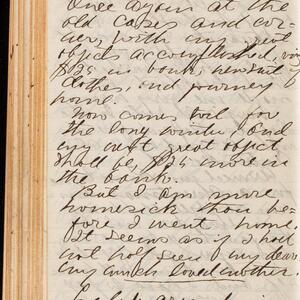 Once again at the
old cases and cor-
ner, with my great
objects accomplished, viz
$25 in bank, new suit of
clothes, and journey
home.
Now comes toil for
the long winter, and
my next great object
shall be, $25 more in
the bank.
But I am more
homesick than be-
fore I went home.
It seems as if I had
not half seen my dear
my much loved mother.